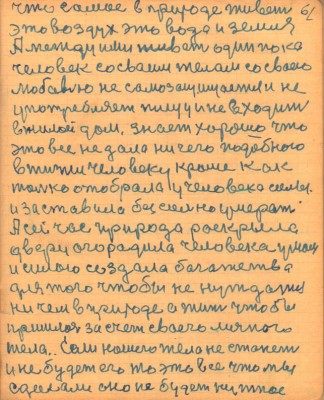 что самое в природе живет 61
это воздух это вода и земля
А между ими живет один пока
человек со своим телам со своею
любавю не самозащищается и не
употребляет пищу и не входит
в жилой дом, знает хорошо что
это все не дала ничего подобного
в жизни человеку кроме как
только отобрала у человека силы
и заставила бессилно умерать
А сейчас природа раскрила
двери огородила человека умом
и силою создала багажества
для того чтобы не нуждатся
ни чем в природе а жит чтобы
пришлося за счет своего мягкого
тела.. Если нашего тела не станет
и не будет его то это все что мы
сделали оно не будет нужное